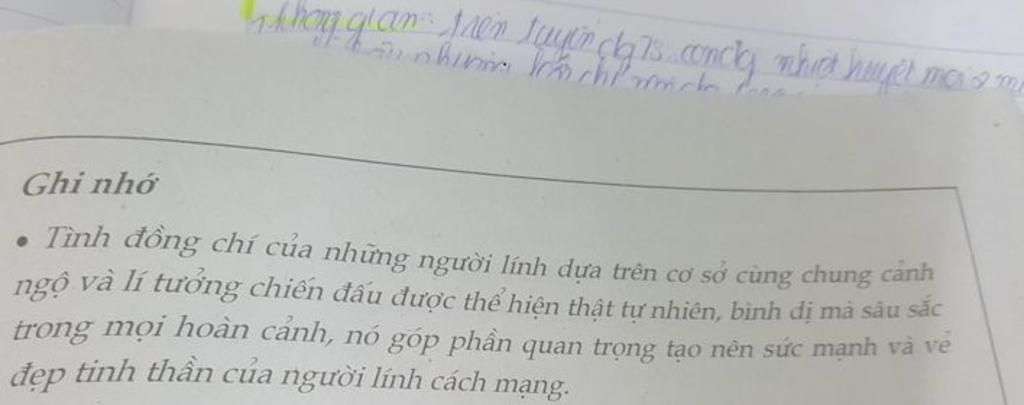 Không gian: trên tuyến
Ghi nhớ
• Tình đồng chí của những người lính dựa trên cơ sở cùng chung cảnh
ngộ và lí tưởng chiến đấu được thể hiện thật tự nhiên, bình dị mà sâu sắc
trong mọi hoàn cảnh, nó góp phần quan trọng tạo nên sức mạnh và vẻ
đẹp tinh thần của người lính cách mạng.